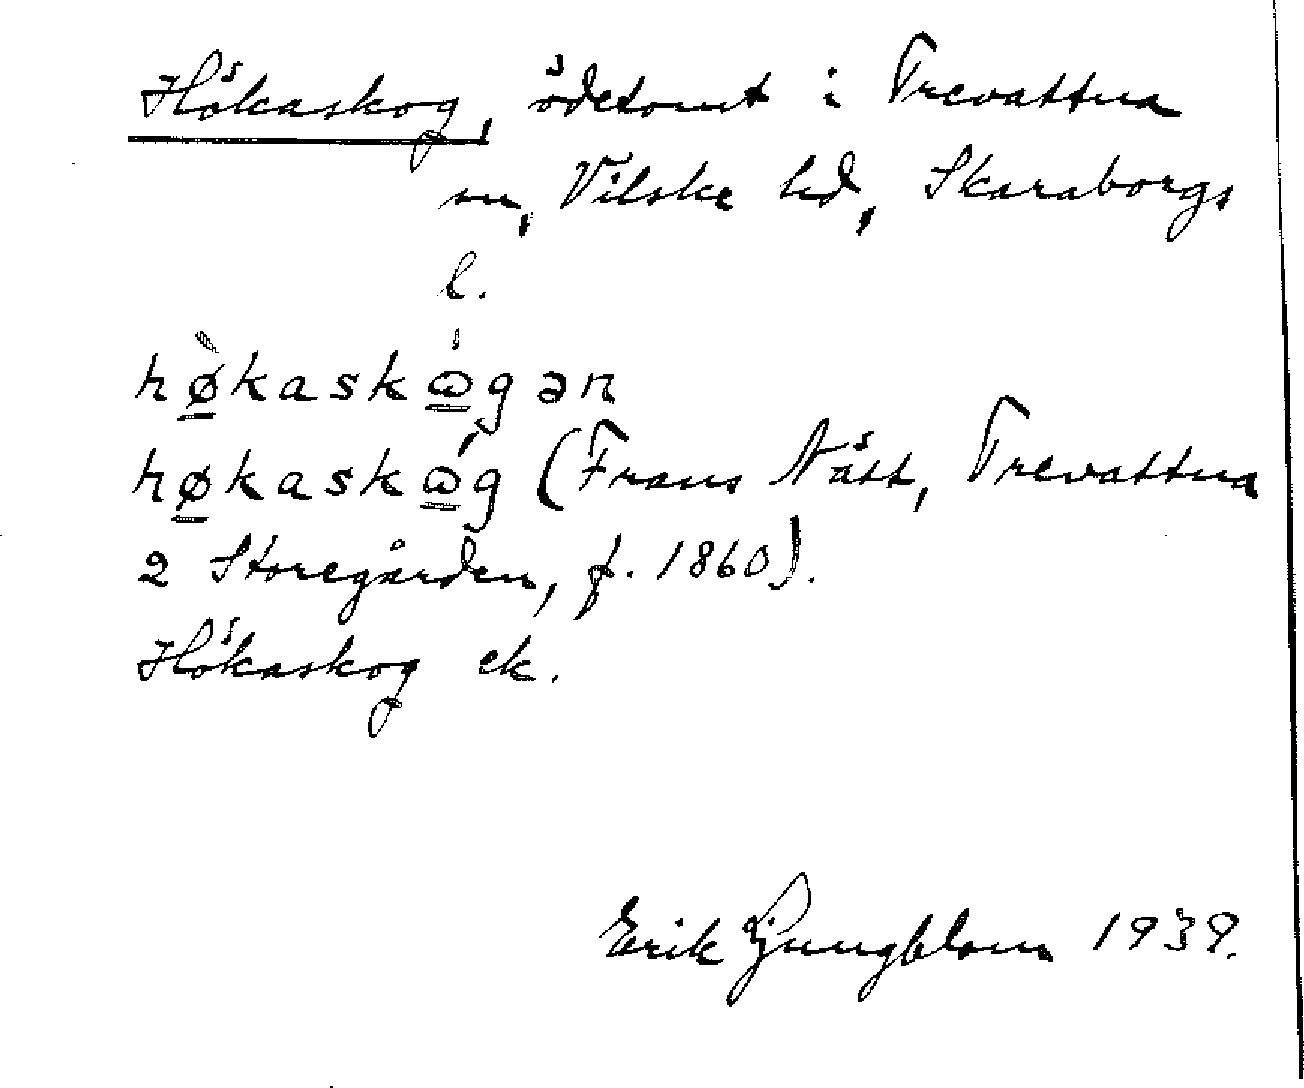 Hökaskog, ödetomt i Trevattna
sn, Vilske hd, Skaraborgs
l.
hø̀kaskⱷ́gən
høkaskⱷ́g (Frans Nätt, Trevattna
2 Storegården, f. 1860).
Hökaskog ek.
Erik Ljungblom 1939.